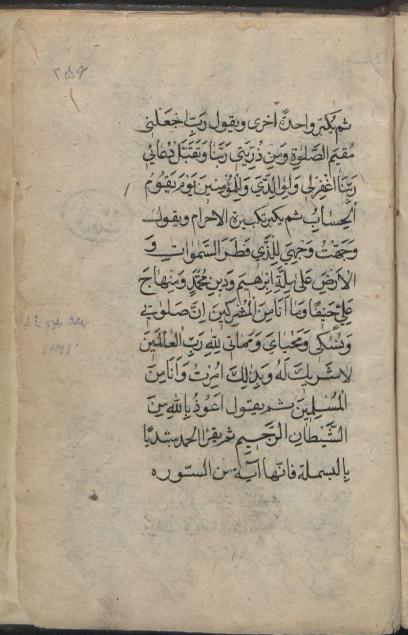 ثم يكبّر واحدة اخرى ويقول رَبِّ اجعَلني
مُقيمَ الصَّلوةِ وَمِن ذُرّيَّتي رَبَّنا وَتَقَبَّل دُعائي
رَبَّنا اغفِر لي وَلِوالِدَيَّ وَلِلمُؤمِنينَ يَومَ يَقومُ
الحِسابُ ثم يكبر تكبيرة الاحرام ويقول
وَجَّهتُ وَجهِيَ لِلَّذي فَطَرَ السَّمواتِ وَ
الاَرضَ عَلى مِلَّةِ ابرهيمَ وَدينِ مُحَمَّدٍ وَمِنهاجِ
عَلِيٍّ حَنيفًا وَما اَنَا مِنَ المُشرِكينَ اِنَّ صَلوتي
وَنُسُكي وَمَحيايَ وَمَماتي لِلّهِ رَبِّ العالَمينَ
لا شَريكَ لَهُ وَبِذلِكَ اُمِرتُ وَاَنَا مِنَ
المُسلِمينَ ثم يقول اَعوذُ بِاللهِ مِنَ
الشَّيطانِ الرَّجيمِ ثم يقرأ الحمد مبتديًا
بالبسملة فانّها آية من السّورة